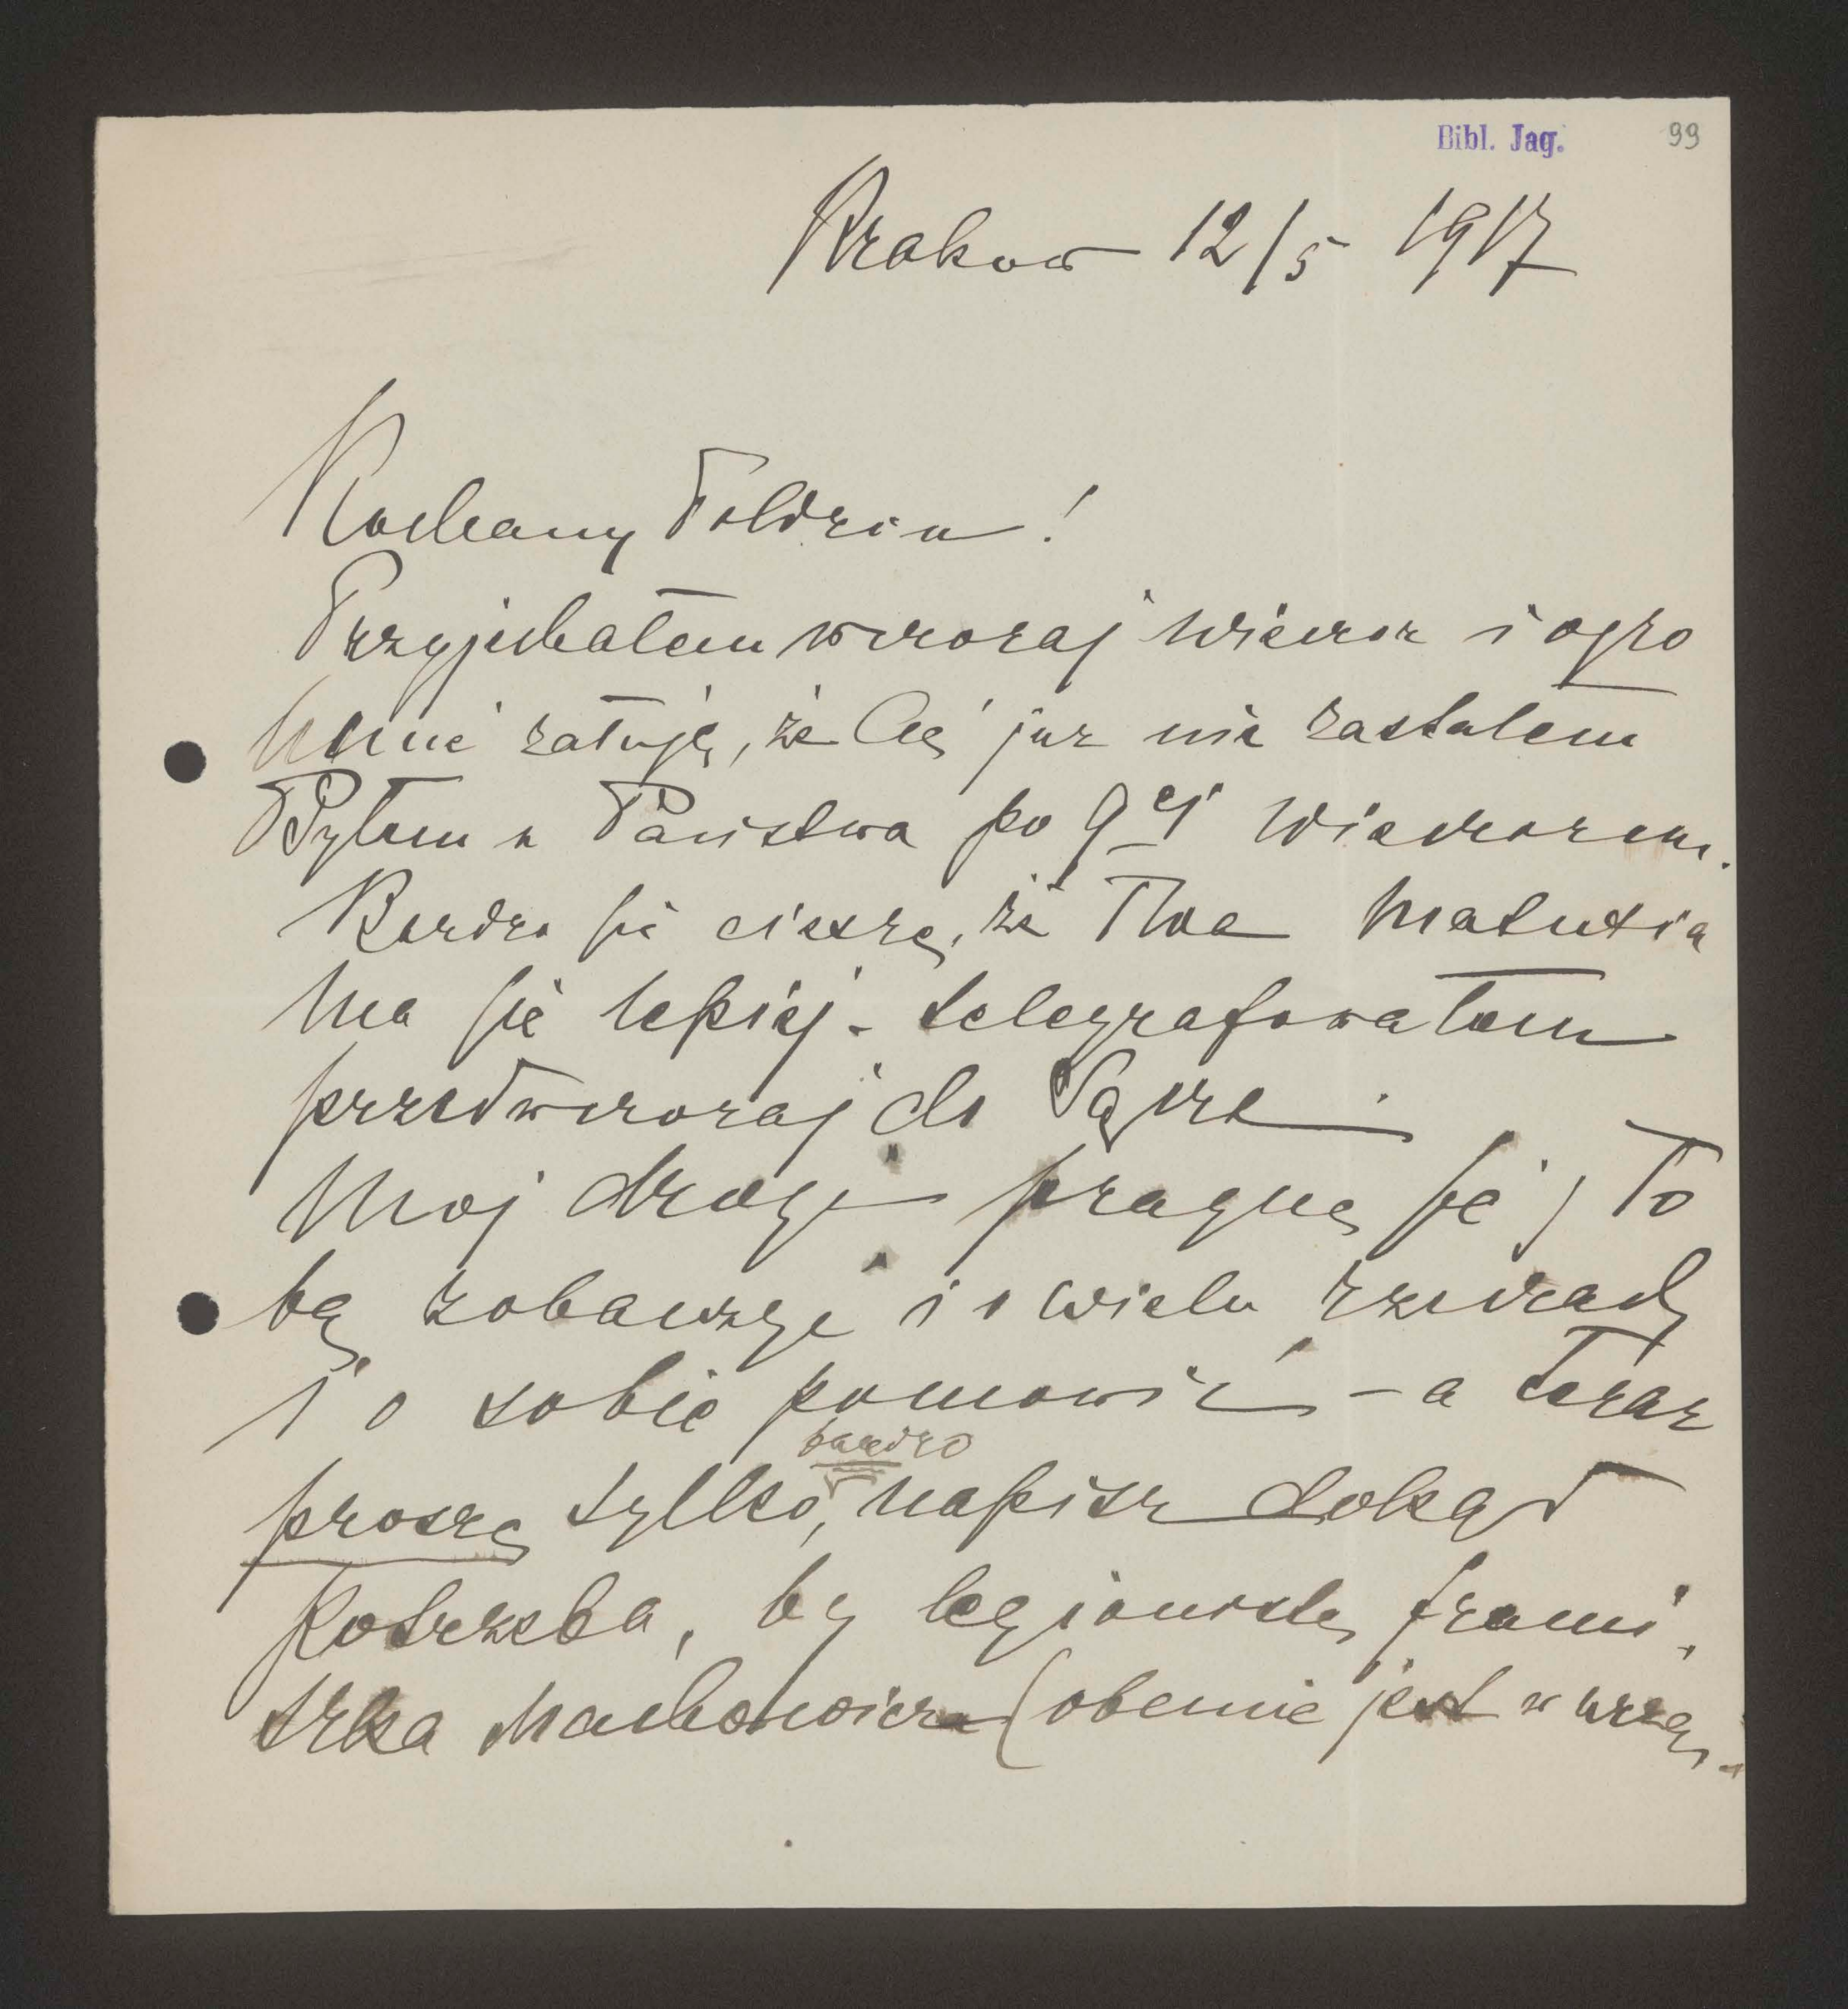 Bibl. Jag. 99
Krakow 12/5 1917
Kochany Poldziu!
Przyjechałem wczoraj wieczor i ogro
mnie żałuję, że Cię już nie zastałem
Byłem u Państwa po 9ej wieczorem.
Bardzo się cieszę, że Twa Matusia
ma się lepiej - telegrafowałem
przedwczoraj do Sącza.
Moj drogi pragnę się z To
bą zobaczyć i o wielu rzeczach
i o sobie pomowić - a teraz
proszę tylko, bardzo napisz dokąd
potrzeba, by legionistę Franci
szka Machowicza (obecnie jest w urzę-